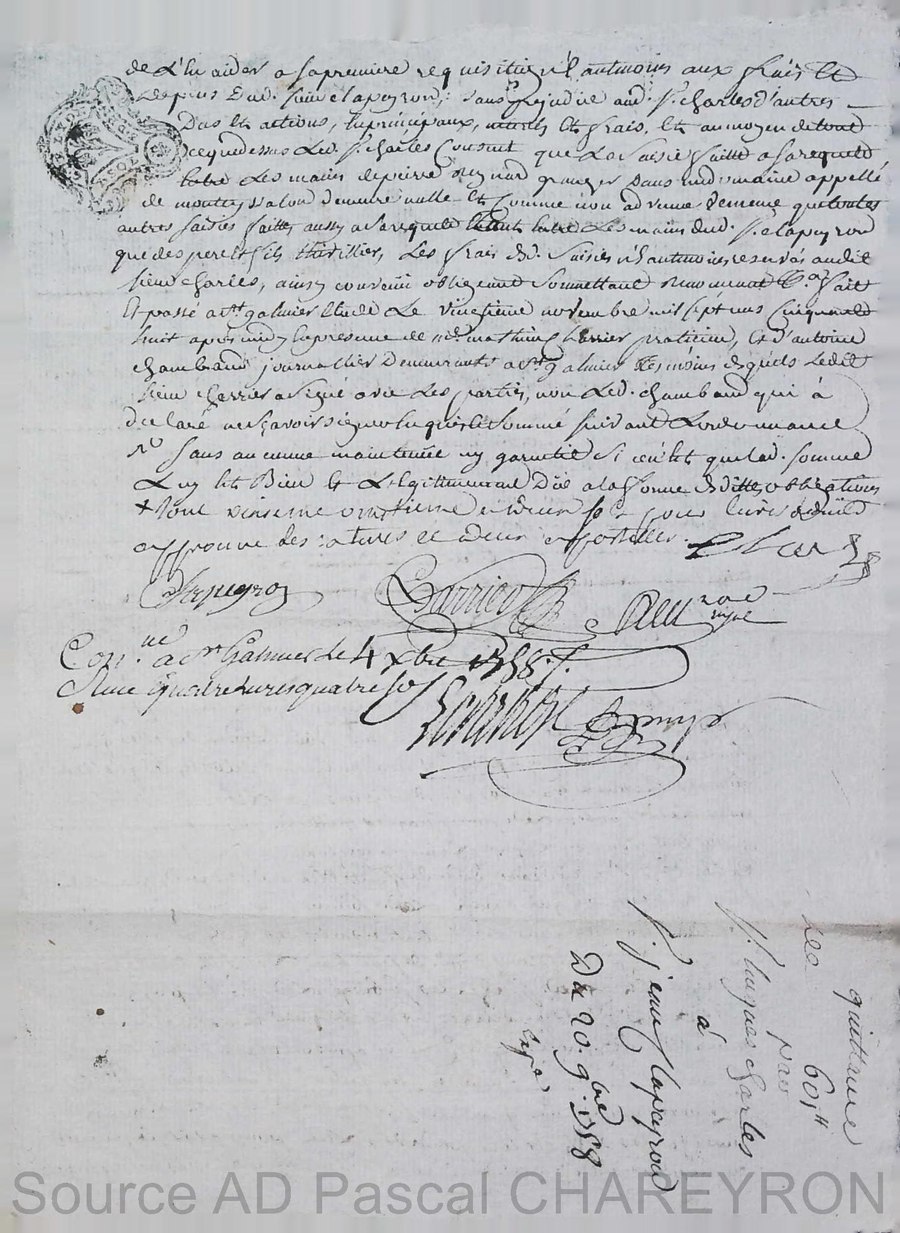 de l'hi aider a sa premiere requisition n'eantmoins aux frais et
depens dud. sieur lapeyron, sans prejudice aud. sr. charles d'autres
Dus et actions, en principaux, interets et frais, et au moyen de tout
ce que dessus led. sr. charles Consent que La Saisie faitte a sa requette
Entre Les mains de pierre granger dans un domaine appellé
de montessalon demeure nulle et Comme non advenue de meme que toutes
autres saisies faittes aussy a sa requette Entre Les mains dud. sr. lapeyron
que des pere et fils thivillier, Les frais des. Saisies n'eantmoins reservés audit
sieur charles, ainsy convenu obligeant Soumettant Renonceant &.a fait
Et passé a st. galmier Etude Le vingtieme novembre mil sept cens Cinquante
huit apres midy En presence de me. mathieu Charrier praticien, Et d'antoine
chambaud journallier Demeurants a st. galmier temoins desquels Ledit
sieur charrier a signé avec Les parties, non Led. chambaud qui à
declaré ne sçavoir signer enquis et sommé suivant L'ordonnance
sans aucune maintenüe ny garantie si ce n'est que lad. somme
Luy est Bien et Legitimement Düe a la forme desdittes obligations
+ tout vinteme
approuvé des ratures
Charles
Lapeyron
Charrier
Con.ué a St Galmier le 4 xbre 1758.
Reçu quatre livres quatre sols
quittance
de 601#
par
sr. hugues charles
à
sr. jean lapeyron
Du 20. 9bre 1758
Expe
Source AD Pascal CHAREYRON